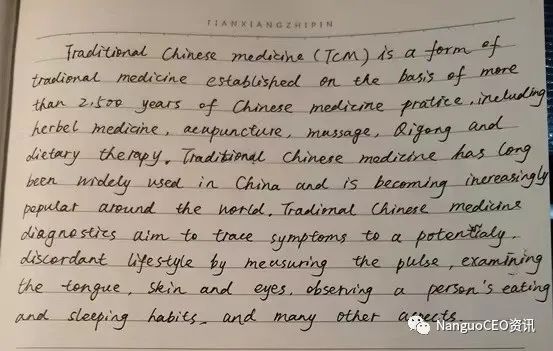 TIANXIANGZHIPIN
Traditional Chinese medicine (TCM) is a form of
tradional medicine established on the basis of more
than 2,500 years of Chinese medicine pratice, including
herbel medicine, acupuncture, massage, Qigong and
dietary therapy. Traditional Chinese medicine has long
been widely used in China and is becoming increasingly
popular around the world. Tradional Chinese medicine
diagnostics aim to trace symptoms to a potentialy
discordant lifestyle by measuring the pulse, examining
the tongue, skin and eyes, observing a person's eating
and sleeping habits, and many other aspects.
NanguoCEO资讯